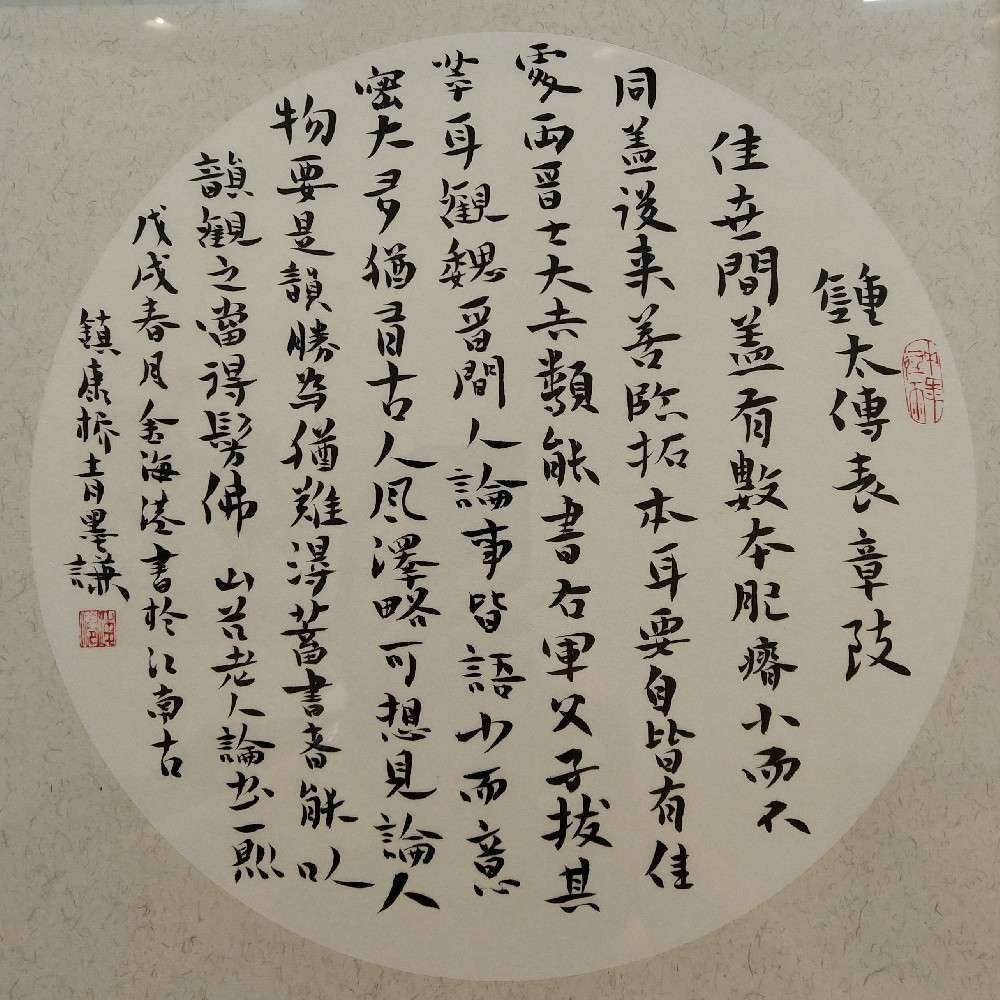 鍾太傅表章致
佳世間蓋有數本肥瘠小而不
同蓋後來善臨拓本耳要自皆有佳
處兩晉士大夫類能書右軍父子拔其
萃耳觀魏晉間人論事皆語少而意
密大多猶有古人風澤略可想見論人
物要是韻勝為猶難得蓄書者能以
韻觀之當得髣佛 山谷老人論書一則
戊戌春月金海港書於江南古
鎮康橋青墨謙